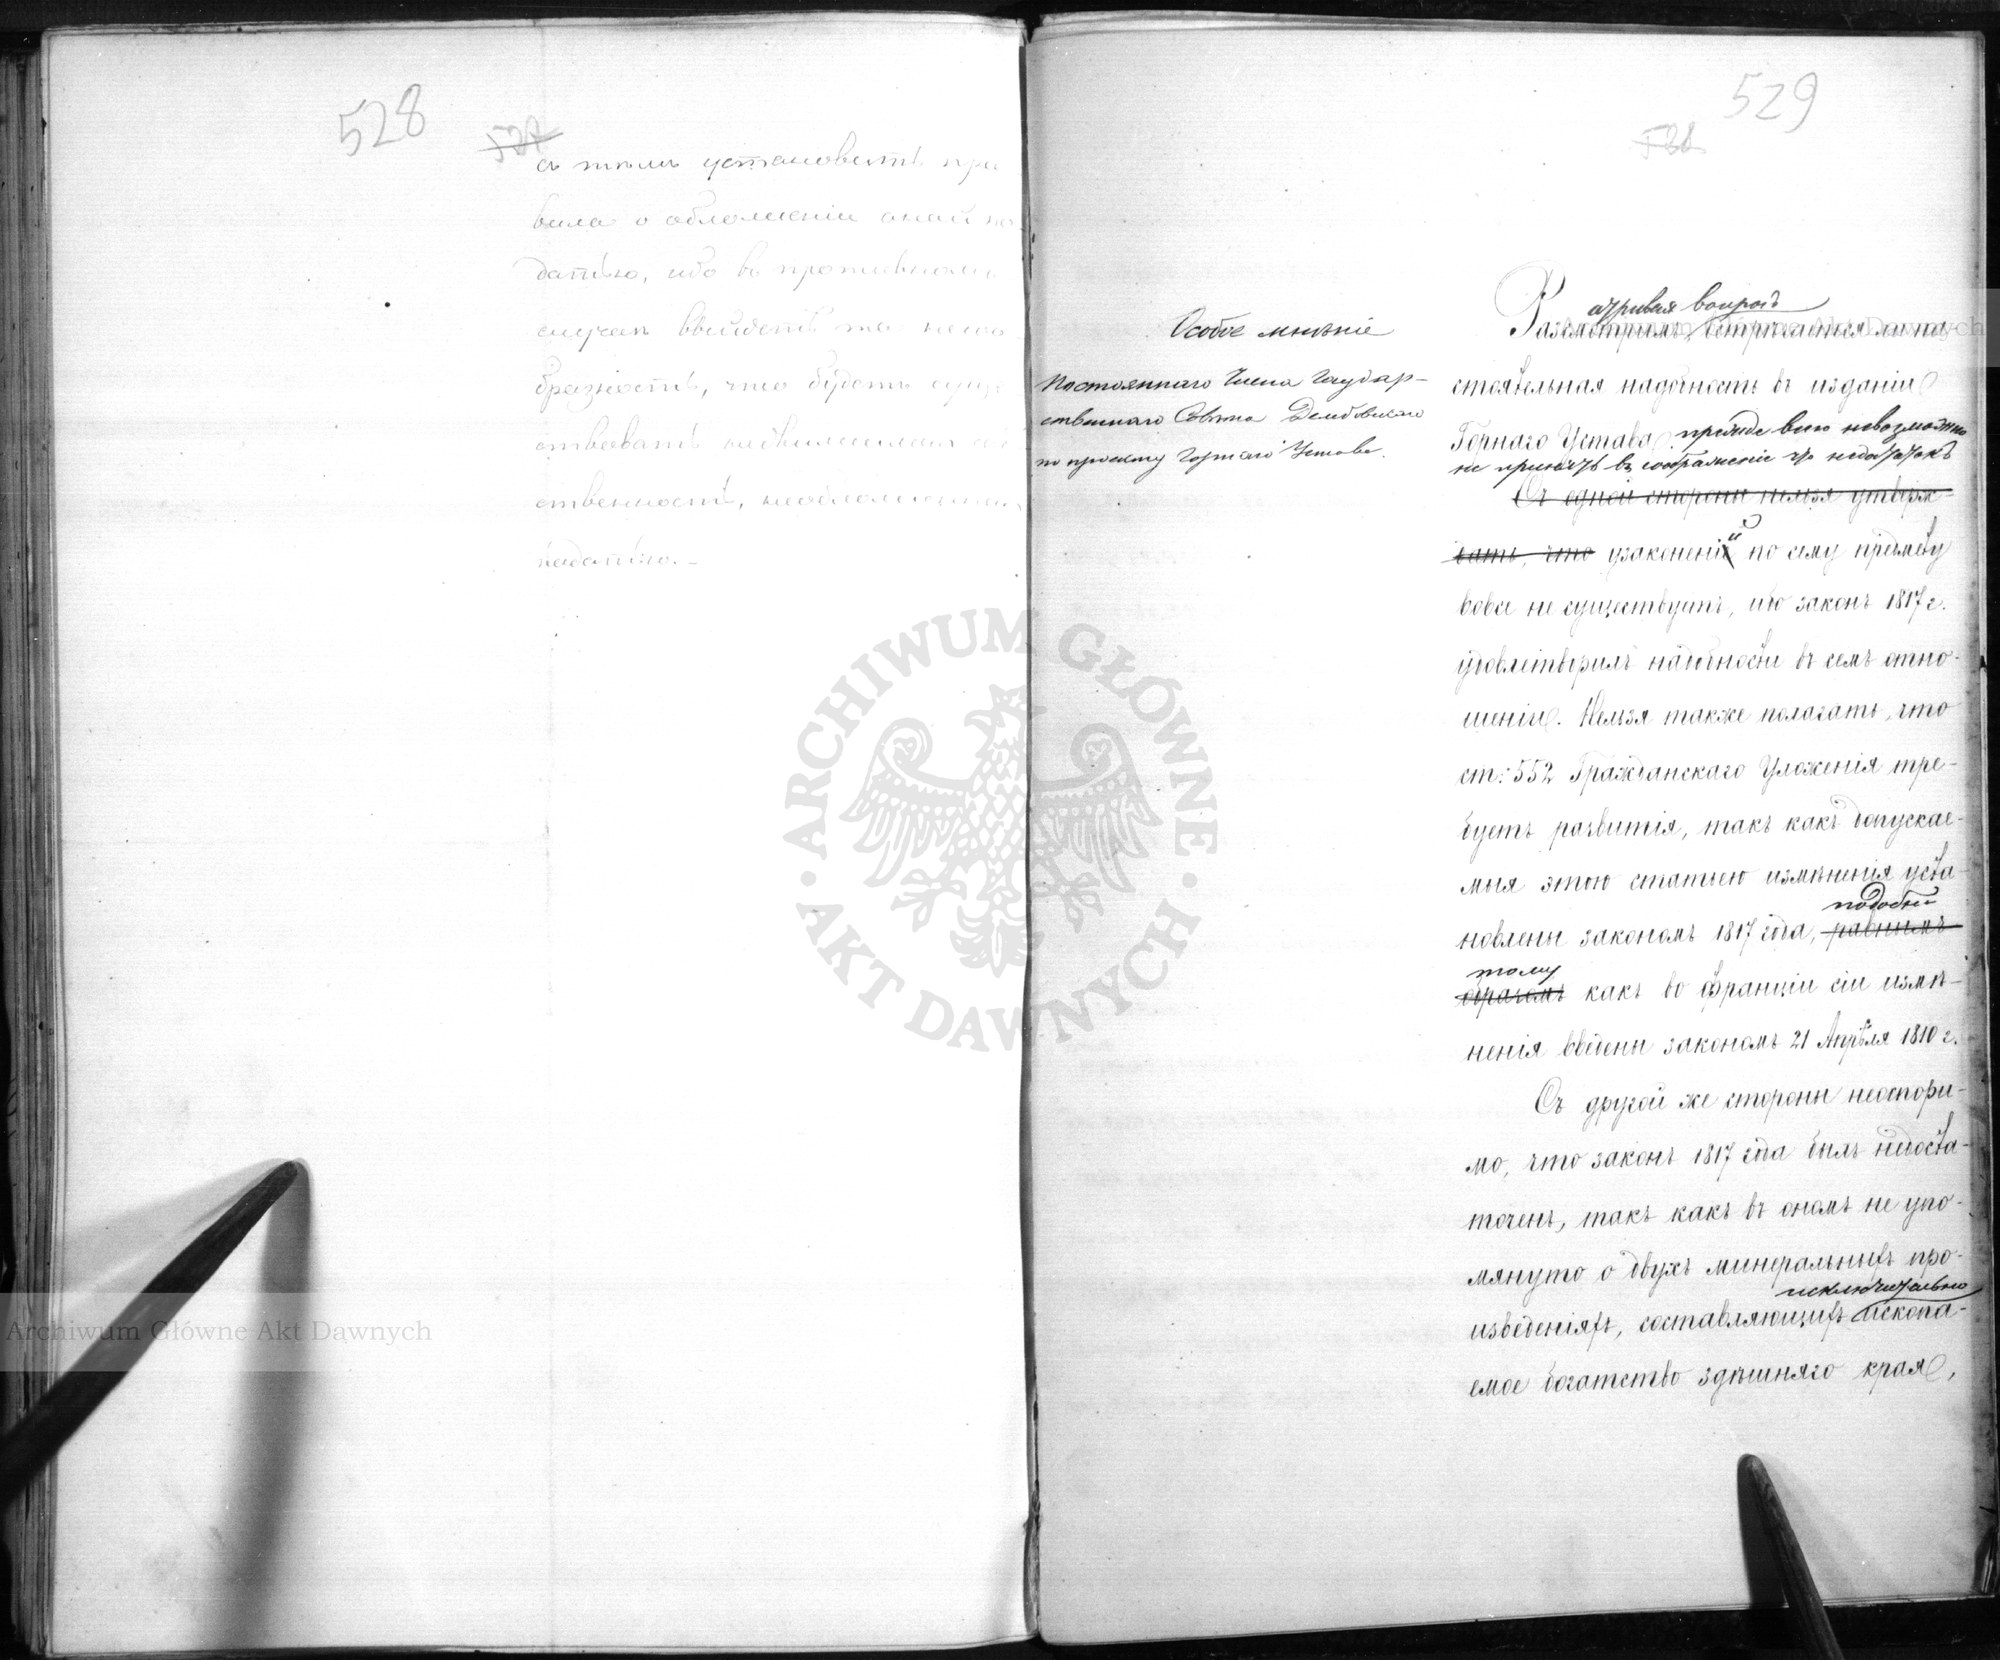 528
527
съ тѣмъ установить пра-
вила о обложеніи оной по-
датью, ибо въ противномъ
случаѣ выйдетъ та несо-
бразность, что будетъ суще-
ствовать недвижимая соб-
ственность, необложенная
податью.-
529
528
Особое мнѣніе
Постояннаго Члена Государ-
ственнаго Совѣта Дембовскаго
по проекту Горнаго Устава.
атривая вопросъ
Разсмотримъ, встрѣчается ли на-
стоятельная надобность въ изданіи
Горнаго Устава, прежде всего невозможно
не принять въ соображеніе что недостатокъ
Съ одной стороны нельзя утверж-
дать, что узаконеній по сему предмету
вовсе не существуетъ, ибо законъ 1817 г.
удовлетворилъ надобности въ семъ отно-
шеніи. Нельзя также полагать, что
ст: 552 Гражданскаго Уложенія тре-
буетъ развитія, такъ какъ допускае-
мыя этою статьею измѣненія уста-
подобно
новлены закономъ 1817 года, равнымъ
тому
образомъ какъ во Франціи сіи измѣ-
ненія введены закономъ 21 Апрѣля 1810 г.
Съ другой же стороны неоспори-
мо, что законъ 1817 года былъ недоста-
точенъ, такъ какъ въ ономъ не упо-
мянуто о двухъ минеральныхъ про-
исключительно
изведеніяхъ, составляющихъ ископа-
емое богатство здѣшняго края,
ARCHIWUM GŁÓWNE AKT DAWNYCH
Archiwum Główne Akt Dawnych
Archiwum Główne Akt Dawnych